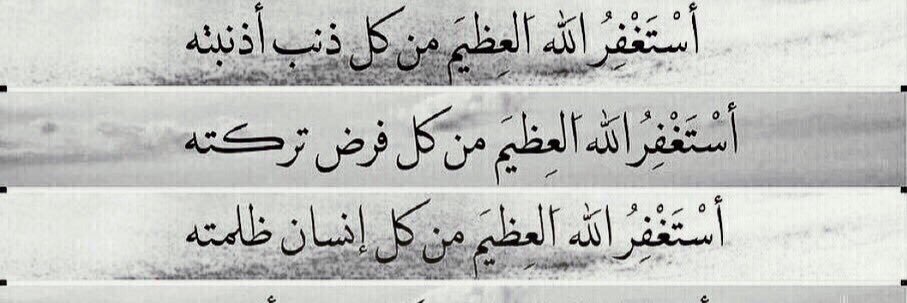 أسْتَغْفِرُ الله اَلعِظيَم من كل ذنب أذنبته
أسْتَغْفِرُ الله اَلعِظيَم من كل فرض تركته
أسْتَغْفِرُ الله اَلعِظيَم من كل إنسان ظلمته